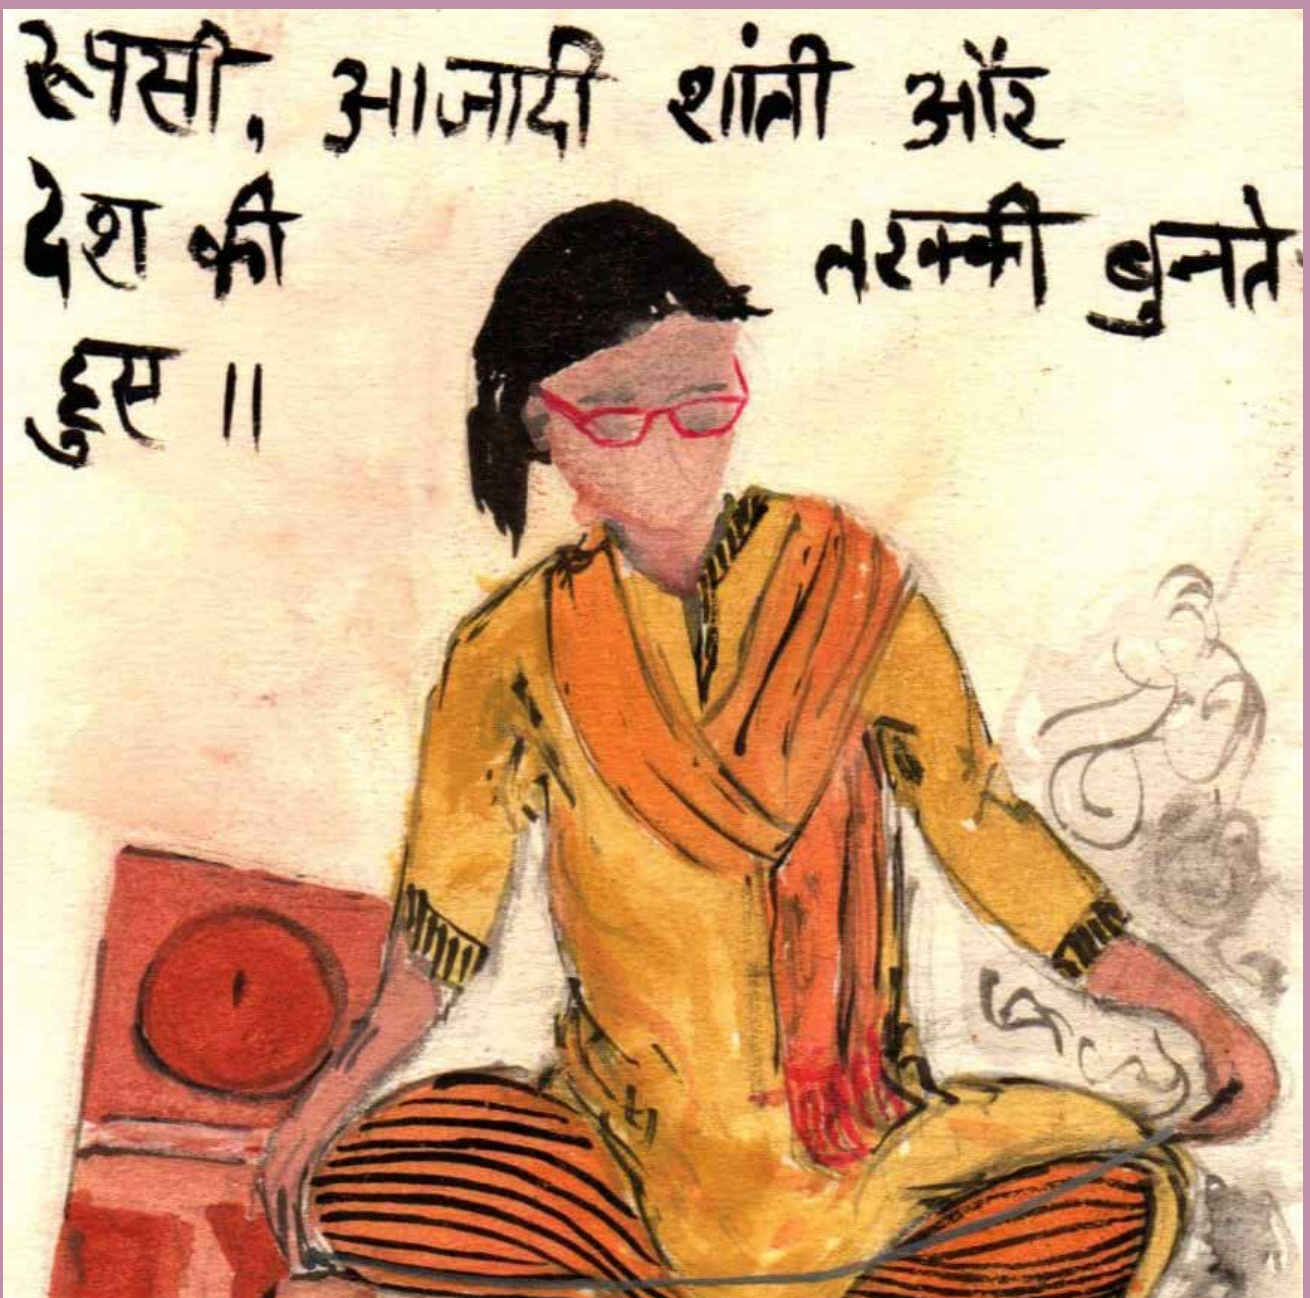 रूपसी, आजादी शांती और
देश की तरक्की बुनते
हुए ॥